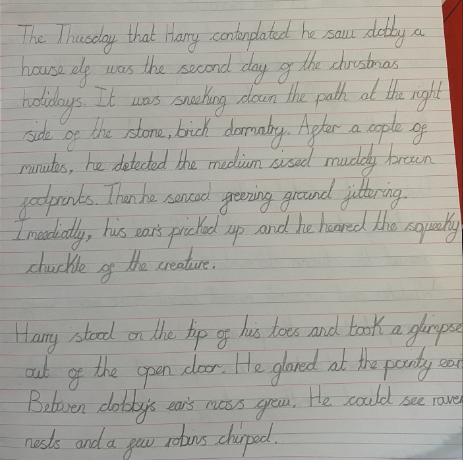 The Thusday that Harry contenplated he saw dobby a
house elf was the second day of the christmas
holidays. It was sneeking down the path at the right
side of the stone, brick dormatry. After a cople of
minutes, he detected the medium sised muddy brown
footprints. Then he senced freezing ground jittering.
Imeediatly, his ears pricked up and he heared the squeeky
chuckle of the creature.

Harry stood on the tip of his toes and took a glimpse
out of the open door. He glared at the pointy ear
Betwen dobby's ears moss grew. He could see raven
nests and a few robins chirped.